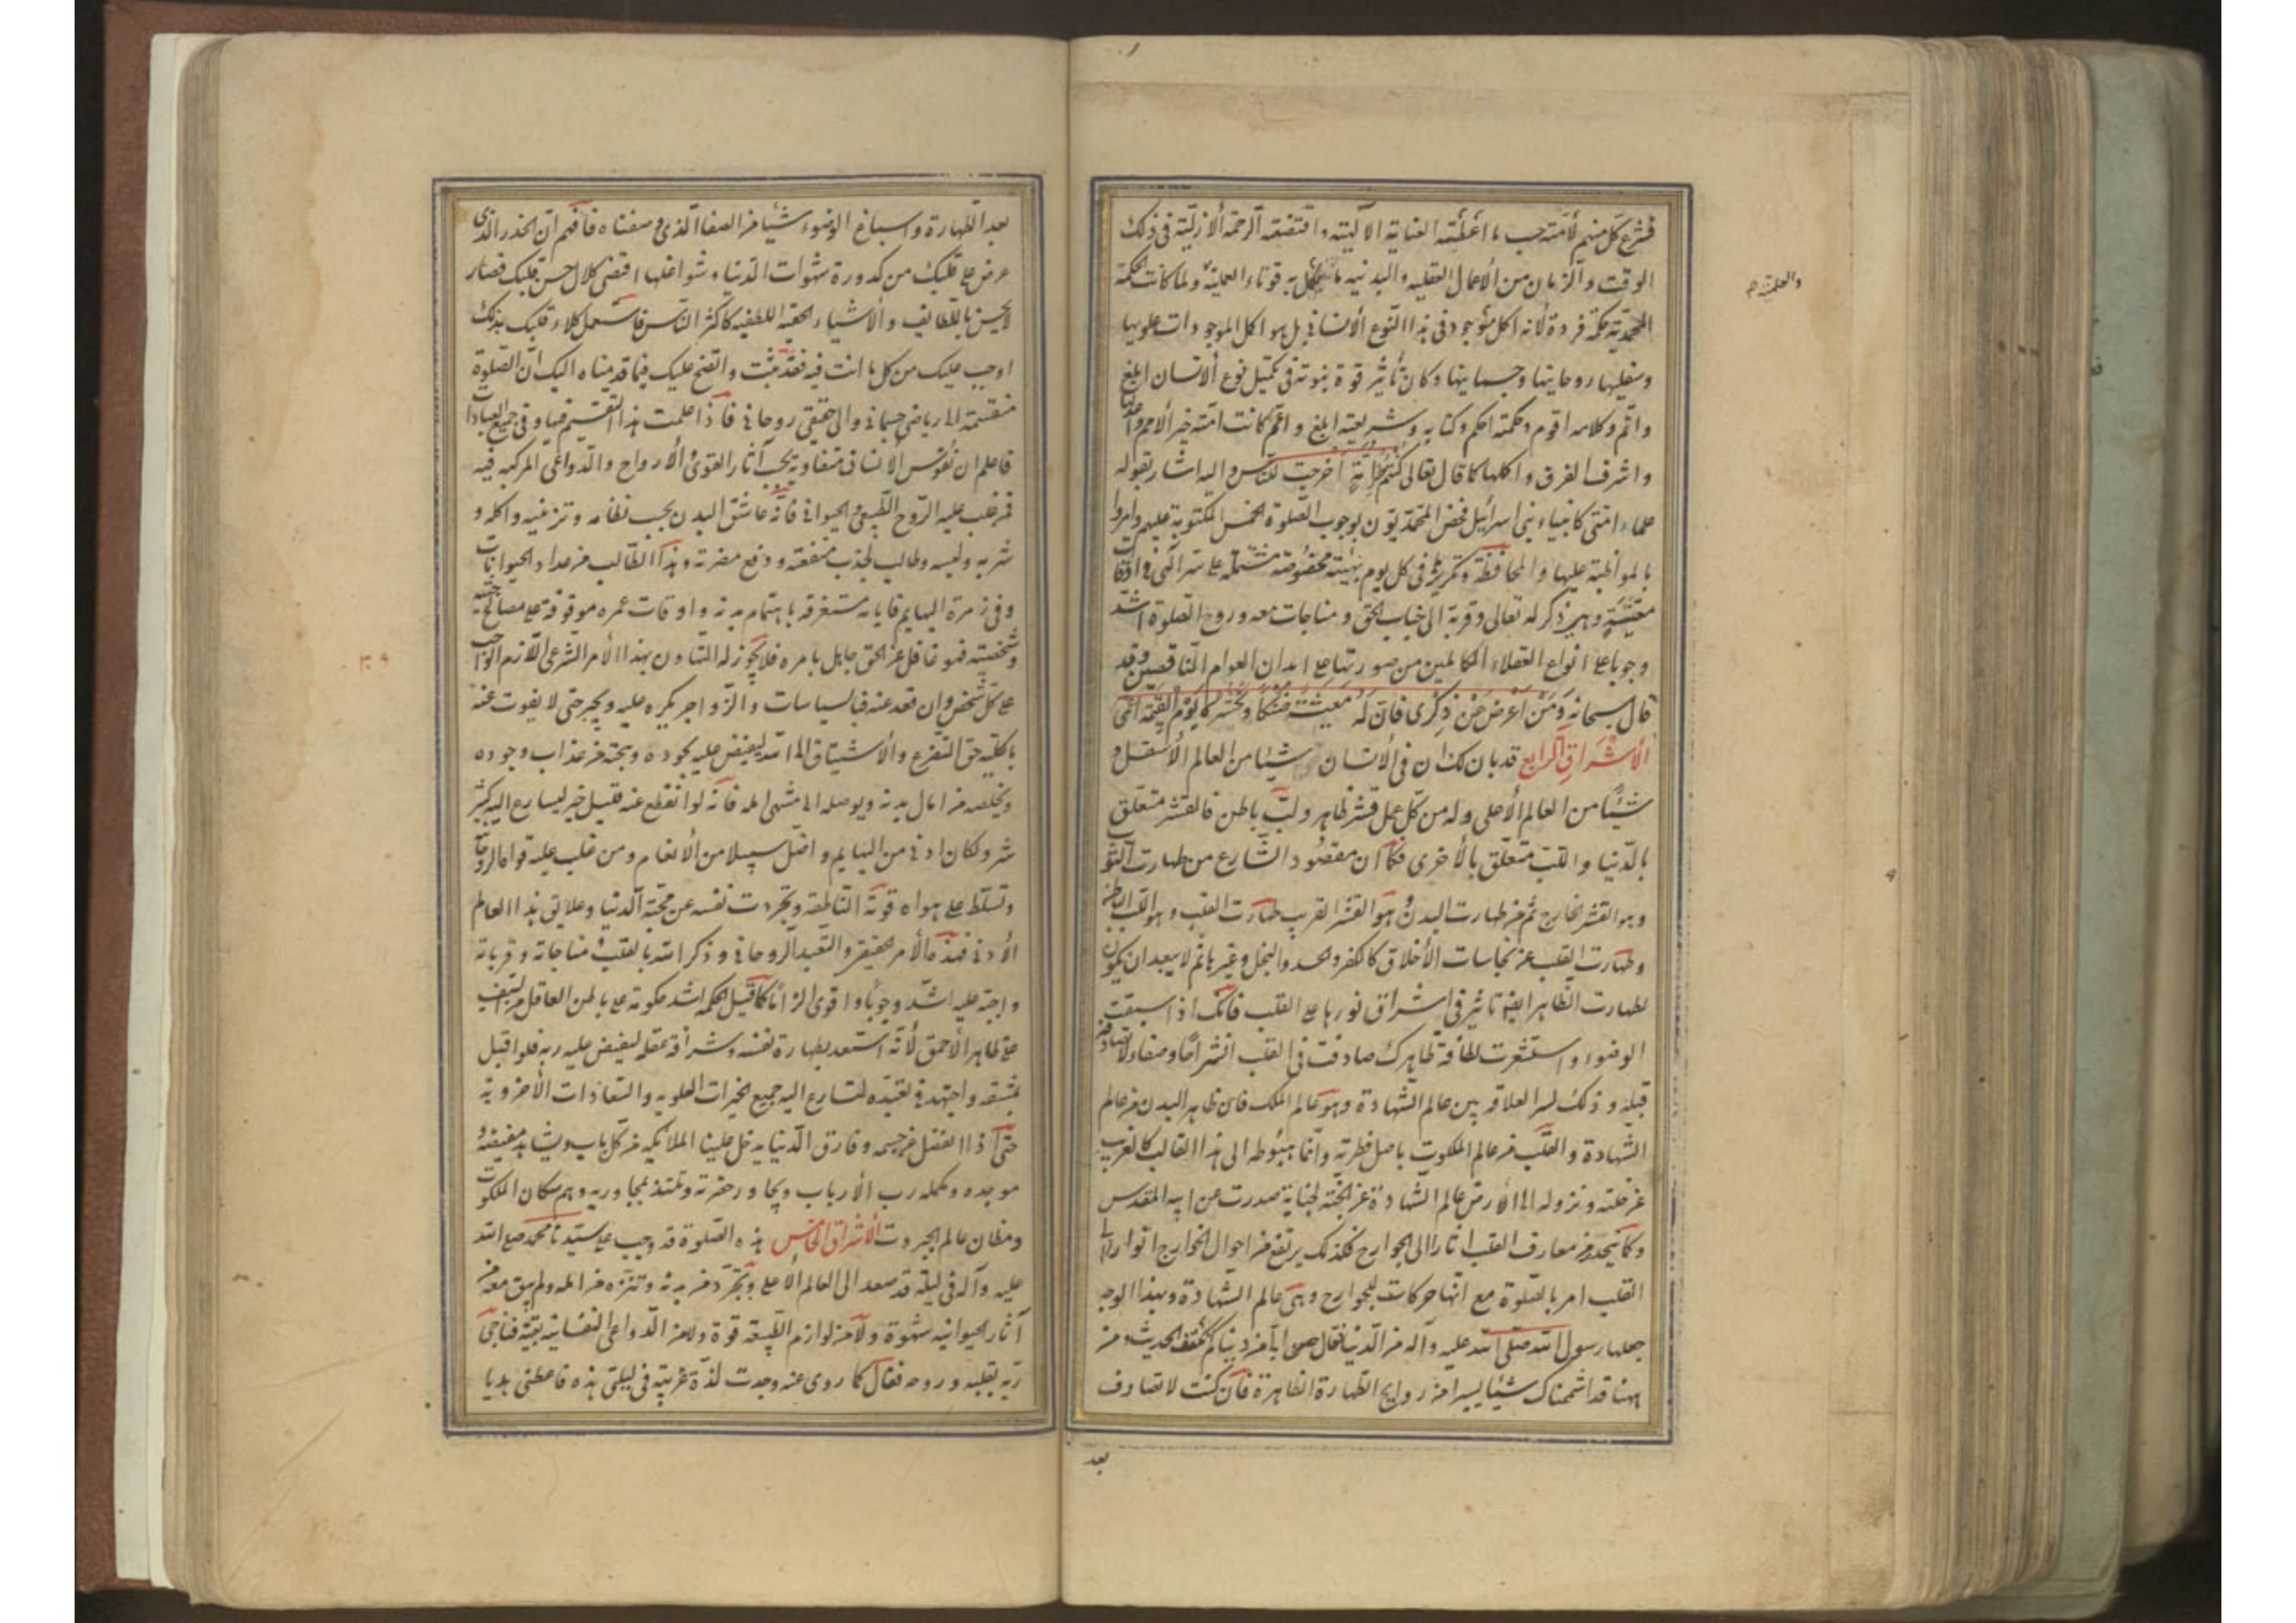 فشرع كل منهم لأمته حسب ما اعطته العناية الالهية واقتضته الرحمة الأزلية فى ذلك
الوقت والزمان من الأعمال العقليه والبدنيه ما يكمل به قوتاه العملية ولما كانت الحكمة
والعلمية
المحمدية حكمة فردة لأنه اكمل موجود فى هذا النوع الأنسانى بل هو اكمل الموجودات علويها
وسفليها روحانيتها وجسمانيتها وكان تأثير قوة نبوته فى تكميل نوع الأنسان ابلغ
واتم وكلامه اقوم وحكمته احكم وكتابه وشريعته ابلغ واعم كانت امته خير الأمم واعدلها
واشرف الفرق واكملها كما قال تعالى كنتم خير امة اخرجت للناس واليه اشار بقوله
علماء امتى كانبياء بنى اسرائيل فخص المحمديون بوجوب الصلوة الخمس المكتوبة عليهم وامروا
بالمواظبة عليها والمحافظة وتكريرها فى كل يوم بهيئة مخصوصة مشتملة على سر الهى فى اوقات
معينة وهى ذكر له تعالى وقربة الى جناب الحق ومناجات معه وروح الصلوة اشد
وجوبا على انواع العقلاء الكاملين من صورتها على ابدان العوام الناقصين وقد
قال سبحانه ومن اعرض عن ذكرى فان له معيشة ضنكا ونحشره يوم القيمة اعمى
الأشراق الرابع قد بان لك ان فى الأنسان شيئا من العالم الأسفل و
شيئا من العالم الأعلى وله من كل عمل قشر ظاهر ولب باطن فالقشر متعلق
بالدنيا واللب متعلق بالأخرى فكما ان مقصود الشارع من طهارت الثوب
وهو القشر الخارج ثم من طهارت البدن وهو القشر القريب طهارت القلب وهو اللب الباطن
وطهارت القلب عن نجاسات الأخلاق كالكفر والحسد والبخل وغيرها ثم لا يبعد ان يكون
لطهارت الظاهر ايضا تاثير فى اشراق نورها على القلب فانك اذا اسبغت
الوضوء واستشعرت لطافة ظاهرك صادفت فى القلب انشراحا وصفاء لا تصادفه
قبله وذلك لسر العلاقه بين عالم الشهادة وهو عالم الملك فان ظاهر البدن من عالم
الشهادة والقلب من عالم الملكوت باصل فطرته وانما هبوطه الى هذا القالب كالغريب
عن جبلته ونزوله الى الأرض عالم الشهادة عن الجنة لجناية صدرت عن ابيه المقدس
وكما ينحدر من معارف القلب اثار الى الجوارح فكذلك يرتفع من احوال الجوارح انوار الى
القلب امر بالصلوة مع انها حركات للجوارح وهى عالم الشهادة وبهذا الوجه
جعلها رسول الله صلى الله عليه وآله من الدنيا فقال حبب الى من دنياكم ثلث الحديث ومن
ههنا قد اشممناك شيئا يسيرا من روايح الطهارة الظاهرة فان كنت لا تصادف
بعد
بعد الطهارة واسباغ الوضوء شيئا من الصفا الذى وصفناه فافهم ان الخدر الذى
عرض على قلبك من كدورة شهوات الدنيا وشواغلها اقتضى كلال حس قلبك فصار
لا يحس باللطايف والأشياء الحقيه اللطيفه كاكثر الناس فاستعمل كلاء قلبك بذلك
اوجب عليك من كل ما انت فيه فقد ثبت واتضح عليك فيما قدمناه اليك ان الصلوة
منقسمة الى رياضى جسمانى والى حقيقى روحانى فاذا علمت هذا التقسيم فيها وفى جميع العبادات
فاعلم ان نفوس الانسان متفاوتة بحسب آثار القوى والأرواح والدواعى المركبه فيه
فمن غلب عليه الروح الطبيعى والحيوانى فانه عاشق البدن يحب نظامه وتزيينه واكله و
شربه ولبسه وطالب لجذب منفعته ودفع مضرته وهذا الطالب من عداد الحيوانات
وفى زمرة البهايم فايامه مستغرقه باهتمام بدنه واوقات عمره موقوفة على مصالح جسمه
وشخصيته فهو غافل عن الحق جاهل بامره فلا يجوز له التهاون بهذا الأمر الشرعى اللازم الواجب
على كل شخص وان قعد عنه فبالسياسات والزواجر يكره عليه ويجبر حتى لا يفوت عنه
بالكلية حق التضرع والأشتياق الى الله ليفيض عليه بجوده وينجيه من عذاب وجوده
ويخلصه من امال بدنه ويوصله الى منتهى امله فانه لو انقطع عنه قليل خير ليسارع اليه كثير
شر ولكان ادنى من البهايم واضل سبيلا من الأنعام ومن غلب عليه قواه الروحانية
وتسلط على هواه قوته الناطقه وتجردت نفسه عن محبة الدنيا وعلايق هذا العالم
الأدنى فهذه الأمر الحقيقى والتعبد الروحانى وذكر الله بالقلب ومناجاته وقرباته
واجبة عليه اشد وجوبا واقوى الزاما كما قيل الحكمة اشد حكومة على باطن العاقل من السيف
على ظاهر الأحمق لأنه استعد بطهارة نفسه وشرافة عقله ليفيض عليه ربه فلو اقبل
بعشقه واجتهد فى تعبده لتسارع اليه جميع الخيرات العلويه والسعادات الأخروية
حتى اذا انفصل من جسمه وفارق الدنيا يدخل علينا الملائكه من كل باب ويشاهد مفيضه
موجده ومكمله رب الأرباب ويجاور حضرته ويلتذ بمجاوريه وهم سكان الملكوت
وقطان عالم الجبروت الأشراق الخامس هذه الصلوة قد وجبت على سيدنا محمد صلى الله
عليه وآله فى ليلة قد صعد الى العالم الأعلى وتجرد من بدنه وتنزه من امله ولم يبق معه من
آثار الحيوانيه شهوة ولا من لوازم الطبيعة قوة ولا من الدواعى النفسانية بقية فناجى
ربه بقلبه وروحه فقال كما روى عنه وجدت لذة غريبة فى ليلتى هذه فاعطنى هديا